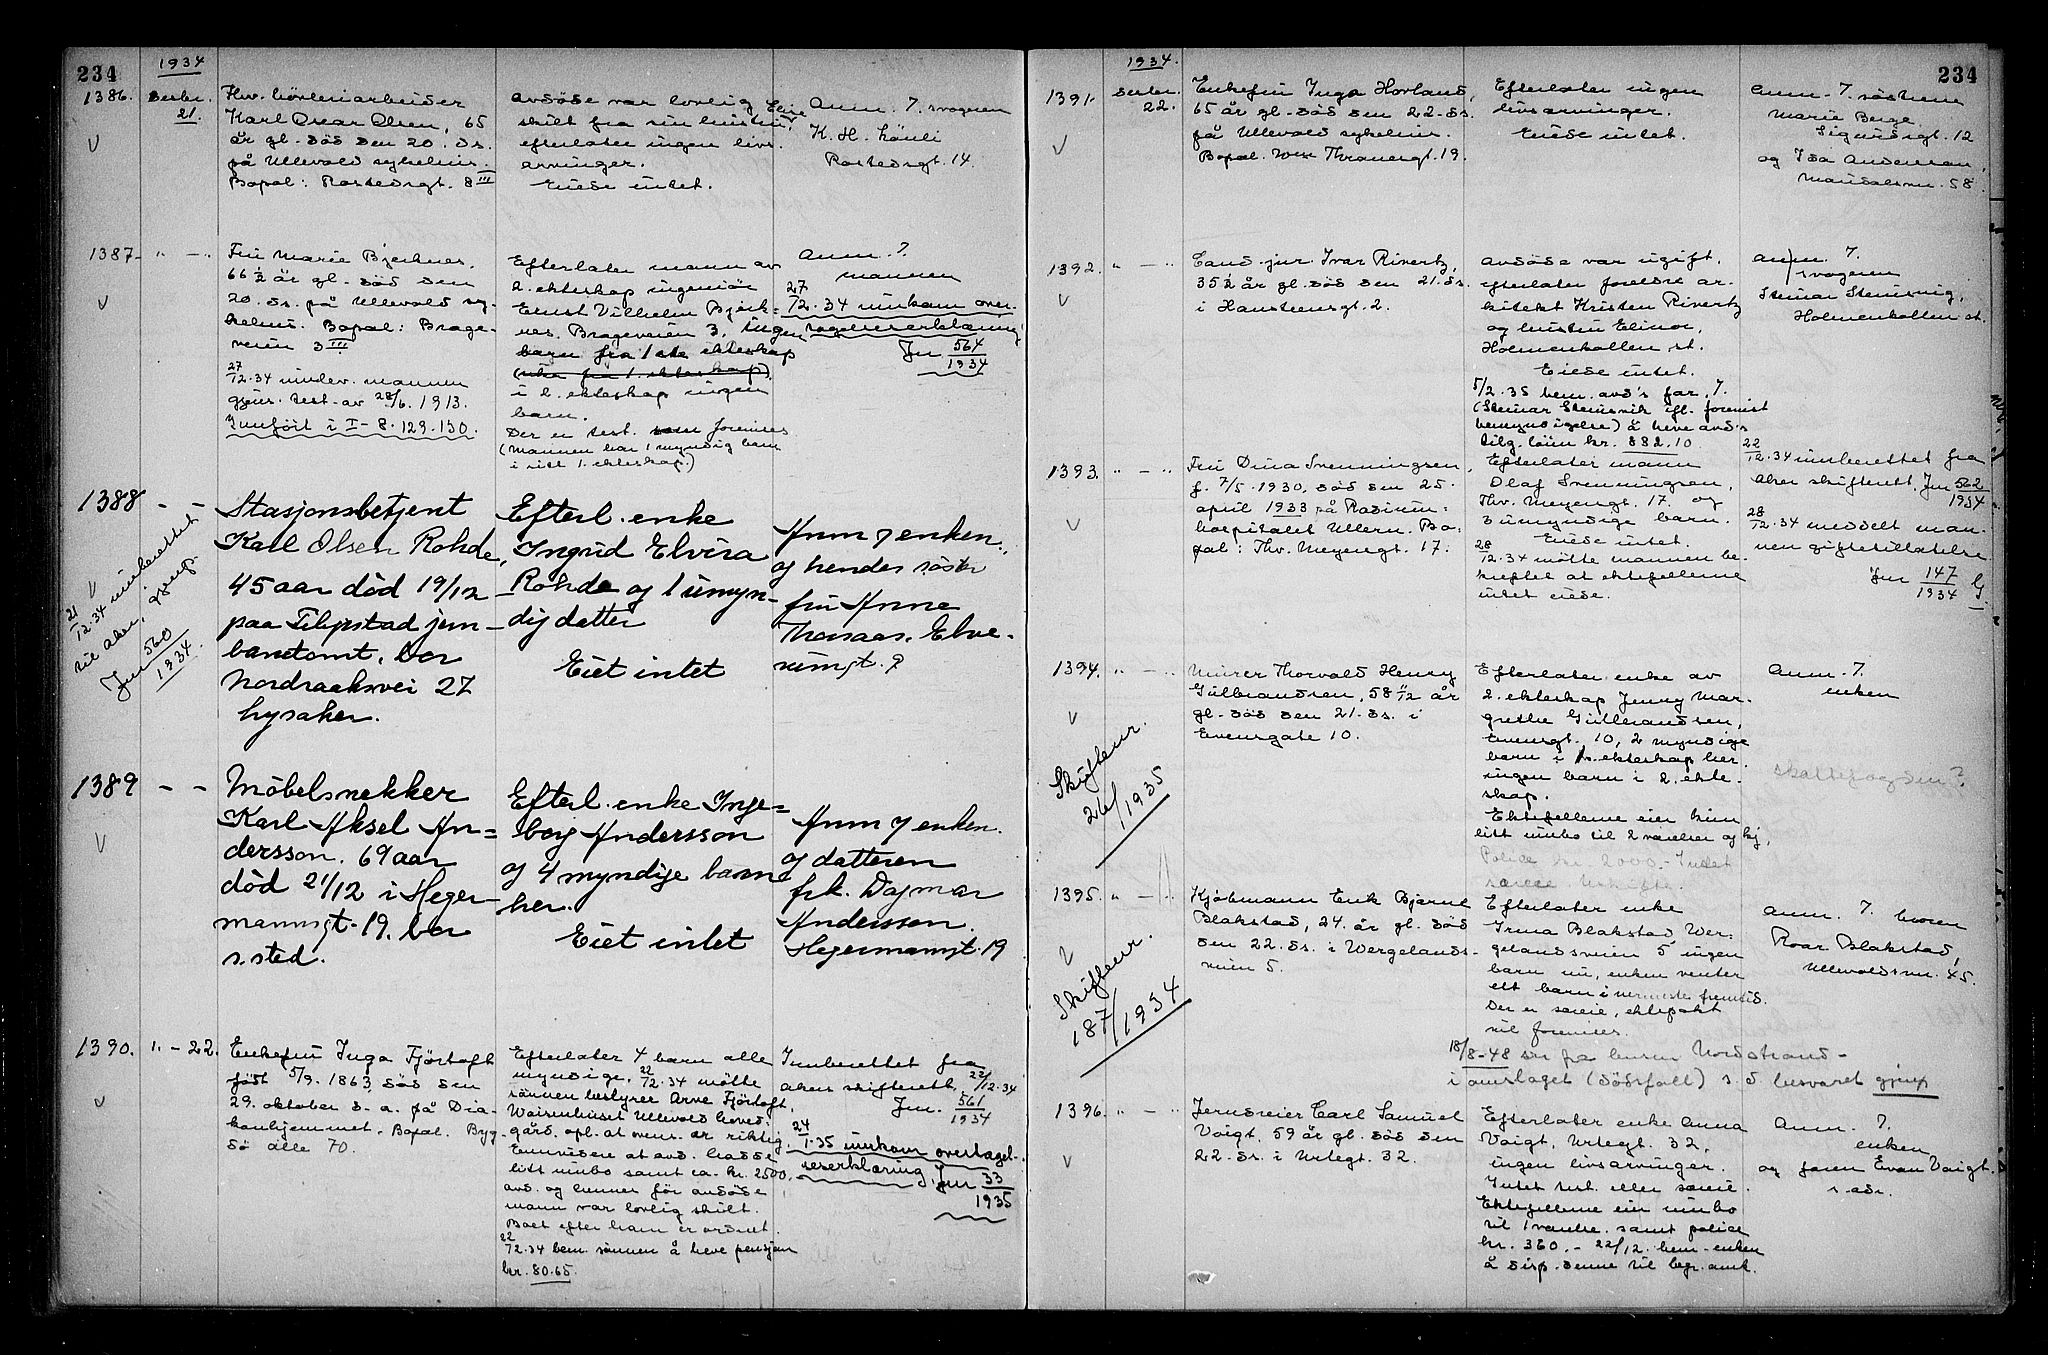 234
1934
1386. Desbr. 21.
Karl Oscar Olsen, 65
år gl. död den 20. ds.
på Ullevold sykehus.
Bopel: Rostedsgt. 8 III
Avdöde var lovlig
skilt fra sin hustru,
efterlater ingen livs-
arvinger.
Eiede intet.
Anm. 7. svogeren
K. H.
Rostedsgt. 14.
1387. " - "
Fru Marie Bjerknes,
66 1/2 år gl. död den
20. ds. på Ullevold sy-
kehus. Bopel: Brage-
veien 3 III
27/12.34 underv. mannen
gjens. test. av 28/6. 1913.
Innført i I - 8. 129. 130.
Efterlater mann av
2. ekteskap ingeniör
Ernst Vilhelm Bjerk-
nes, Brageveien 3, ingen
barn fra 1 ste ekteskap
i 2. ekteskap ingen
barn.
Der er test. som forevises
(mannen har 1 myndig barn
i sitt 1. ekteskap.)
Anm. 7.
mannen
27/12.34 innkom over-
tagelseserklæring
Jnr 564/1934
1388 - -
21/12.34 innberettet
til Aker, gjenp.
Jnr 560/1934.
Stasjonsbetjent
Karl Olsen Rohde,
45 aar död 19/12
paa Filipstad jern-
banetomt, bor
Nordraaksvei 27
Lysaker.
Efterl. enke
Ingrid Elvira
Rohde og 1 umyn-
dig datter
Eiet intet
Anm 7 enken,
og hendes søster
fru Anne
Thoraas, Elve-
rumgt. 9
1389 - -
Möbelsnekker
Karl Aksel An=
dersson. 69 aar
död 21/12 i Heger-
mannsgt. 19, bor
s. sted.
Efterl. enke Inge=
borg Andersson
og 4 myndige barn
her.
Eiet intet
Anm 7 enken.
og datteren
frk. Dagmar
Andersson.
Hegermannsgt. 19
1390. " - 22.
Enkefru Inga Fjörtoft
født 5/9. 1863, död den
29. oktober d. a. på Dia-
konhjemmet. Bopel. Byg-
dö alle 70.
Efterlater 4 barn alle
myndige. 22/12.34 mötte
sönnen bestyrer Arne Fjörtoft,
Waisenhuset Ullevold hoved-
gård, opl. at overs. er riktig.
Ennvidere at avd. hadde
litt innbo samt ca. kr. 2500.
avd. og hennes for avdöde
mann var lovlig skilt.
Boet efter ham er ordnet.
22/12.34 bem. sönnen å heve pensjon
kr. 80.65.
Innberettet fra
Aker skifterett, 22/12.34
Jnr. 561/1934
24/1.35 innkom overtagel-
seserklæring Jnr 33/1935
234
1934.
1391. Desbr. 22.
Enkefru Inga Hovland,
65 år gl. död den 22. ds.
på Ullevold sykehus.
Bopel. Thranesgt. 19.
Efterlater ingen
livsarvinger.
Eiede intet.
Anm. 7. söstrene
Marie Berge,
Sigurdsgt. 12
og Ida Andersson,
Maridalsvn. 58.
1392. " - "
Cand. jur. Ivar Rivertz,
35 1/2 år gl. död den 21. ds.
i Hansteensgt. 2.
Avdöde var ugift,
efterlater foreldre ar-
kitekt Kristen Rivertz
og hustru Elinor,
Holmenkollen st.
Eiede intet.
5/2. 35 bem. avd's far, 7.
(Steinar Stensvik ifl. forevist
bemyndigelse) å heve avd's
tilg. lönn kr. 882.10.
Anm. 7.
svogeren
Holmenkollen st.
1393. " - "
Fru Dina Svenningsen,
f. 7/5. 1930, död den 25.
april 1933 på Radium-
hospitalet Ullern. Bo-
pel: Thv. Meyersgt. 17.
Efterlater mann
Olaf Svenningsen,
Thv. Meyersgt. 17. og
3 umyndige barn.
Eiede intet.
28/12.34 mötte mannen be-
kreftet at ektefellene
intet eiede.
22/12.34 innberettet fra
Aker skifterett, Jnr 562/1934
28/12.34 meddelt man-
nen giftetillatelse
Jnr 147/1934 G
1394. " - "
Skifteur.
26/1935
Murer Thorvald Henry
Gulbrandsen, 58 11/12 år
gl. död den 21. ds. i
Evensgate 10.
Efterlater enke av
2. ekteskap Jenny Mar-
grethe Gulbrandsen,
Evensgt. 10, 2 myndige
barn i 1. ekteskap her.
ingen barn i 2. ekte-
skap.
Ektefellene eier kun
litt innbo til 2 værelser og kj.
Police kr 2000.- Intet
særeie. Uskifte.
Anm. 7.
enken
1395. " - "
Skifteur.
187/1934
Kjöbmann Erik Bjarne
Blakstad, 24. år gl. död
den 22. ds. i Wergelands-
veien 5.
Efterlater enke
Irma Blakstad, Wer-
gelandsveien 5 ingen
barn nu, enken venter
ett barn i nærmeste fremtid.
Der er særeie, ektepakt
vil forevises.
Anm. 7. broren
Roar Blakstad,
Ullevoldsvn. 45.
18/8-48 Nordstrand -
i omslaget (dödsfall) s. d. besvaret gjenp
1396. " - "
Jernvreier Carl Samuel
Voigt, 59 år gl. död den
22. ds. i Urtegt. 32.
Efterlater enke Anna
Voigt, Urtegt. 32,
ingen livsarvinger.
Intet test. eller særeie.
Ektefellene eier innbo
til 1 værelse. samt police
kr. 360.- 22/12. bem. enken
å disp. denne til begr. omk.
Anm. 7.
enken
og Evan Voigt.
s. adr.